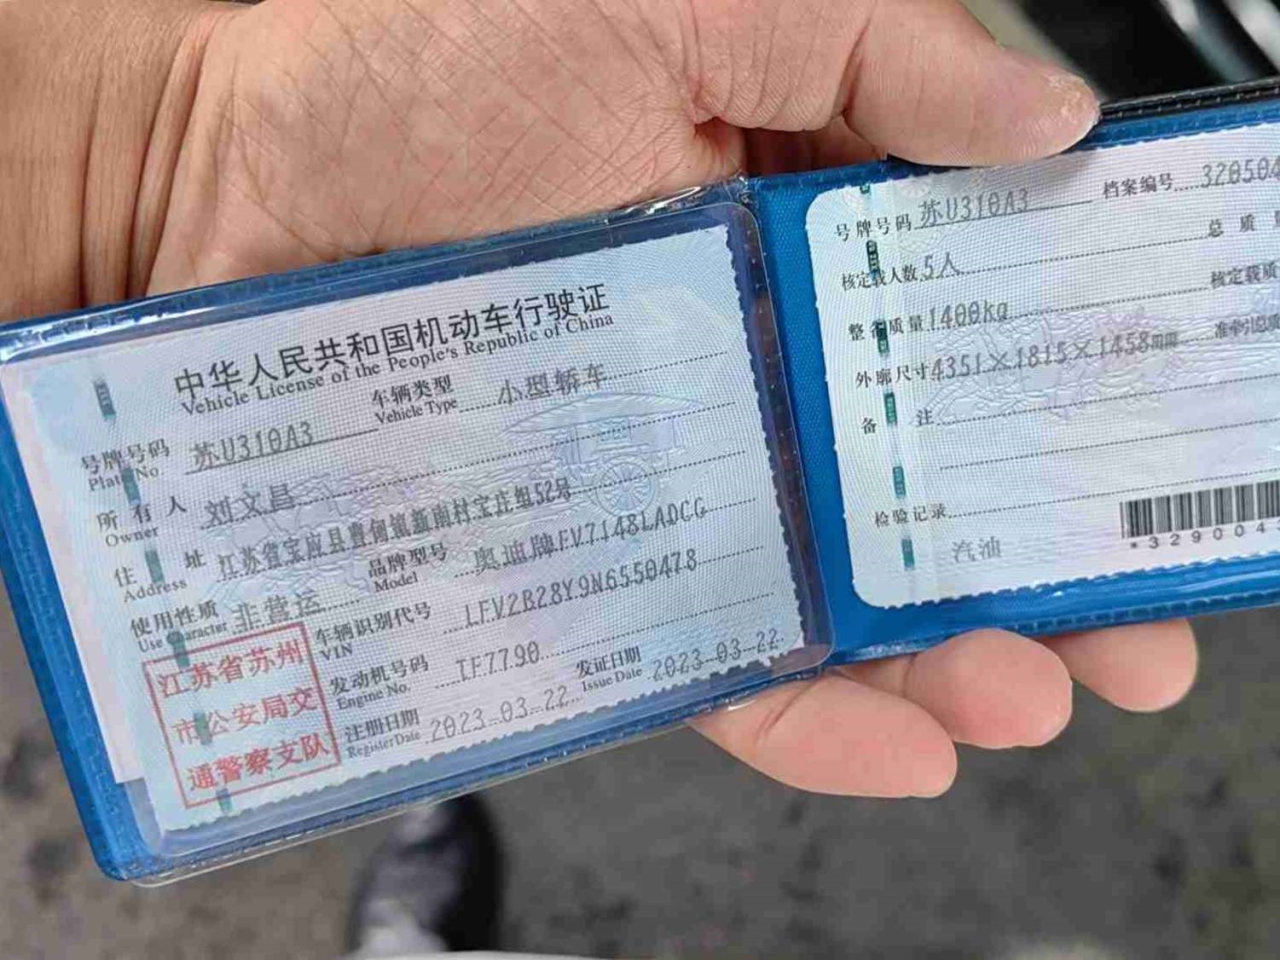 中华人民共和国机动车行驶证
Vehicle License of the People's Republic of China
号牌号码 苏U310A3 车辆类型 小型轿车
Plate No. Vehicle Type
所有人 刘文昌
Owner
住址 江苏省宝应县曹甸镇新南村宝庄组52号
Address
使用性质 非营运 品牌型号 奥迪牌FV7148LADCG
Use Character Model
车辆识别代号 LFV2B28Y9N6550478
VIN
发动机号码 TF7790 发证日期 2023-03-22
Engine No. Issue Date
注册日期 2023-03-22
Register Date
江苏省苏州
市公安局交
通警察支队
号牌号码 苏U310A3 档案编号 320504
核定载人数 5人 总质
整备质量 1400kg 核定载质
外廓尺寸 4351×1815×1458mm 准牵引总质
备注
检验记录
汽油
*329004